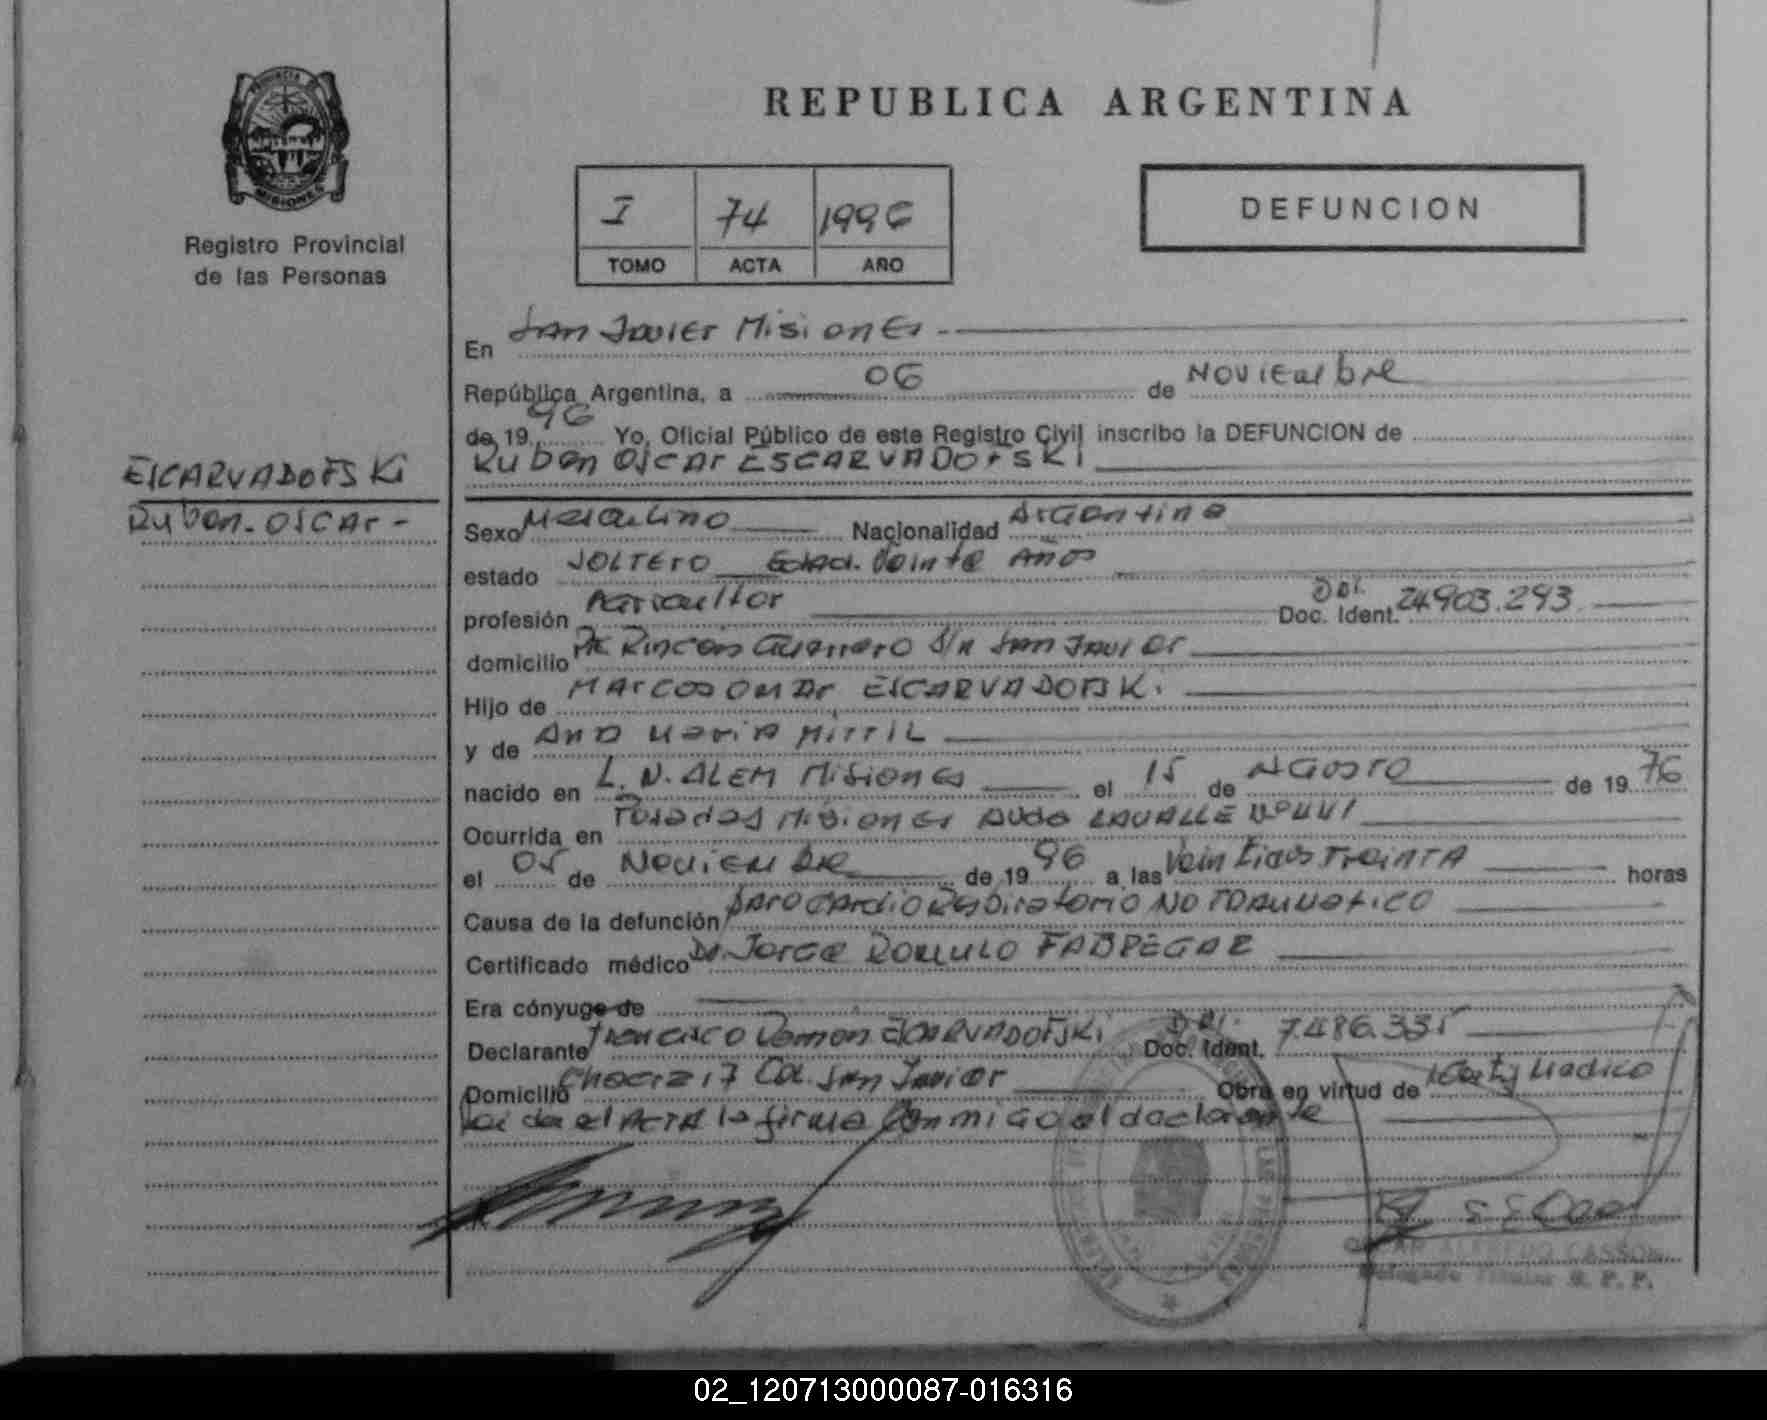 PROVINCIA DE
MISIONES
Registro Provincial
de las Personas
REPUBLICA ARGENTINA
I 74 1996
TOMO ACTA AÑO
DEFUNCION
En San Javier Misiones
República Argentina, a 06 de Noviembre
de 19 96 Yo, Oficial Público de este Registro Civil inscribo la DEFUNCION de
Ruben Oscar ESCARVADOFSKI
ESCARVADOFSKI
Ruben Oscar -
Sexo Masculino Nacionalidad Argentina
estado SOLTERO Edad. Veinte Años
profesión Agricultor Doc. Ident. DNI. 24.903.293
domicilio Rincón Guerrero S/n San Javier
Hijo de Marcos Omar ESCARVADOFSKI
y de Ana Maria
nacido en L. N. ALEM Misiones el 15 de Agosto de 19 76
Ocurrida en Posadas Misiones Avda LAVALLE
el 05 de Noviembre de 19 96 a las Veintidos Treinta horas
Causa de la defunción Paro Cardio Respiratorio No Traumatico
Certificado médico Dr. Jorge Romulo
Era cónyuge de
Declarante Francisco Ramon ESCARVADOFSKI Doc. Ident. DNI. 7.486.335
Domicilio Chacra 17 Col. San Javier Obra en virtud de Certf Medico
Leida el Acta la firma Conmigo el declarante
OSCAR ALFREDO
Delegado Titular R. P. P.
02_120713000087-016316